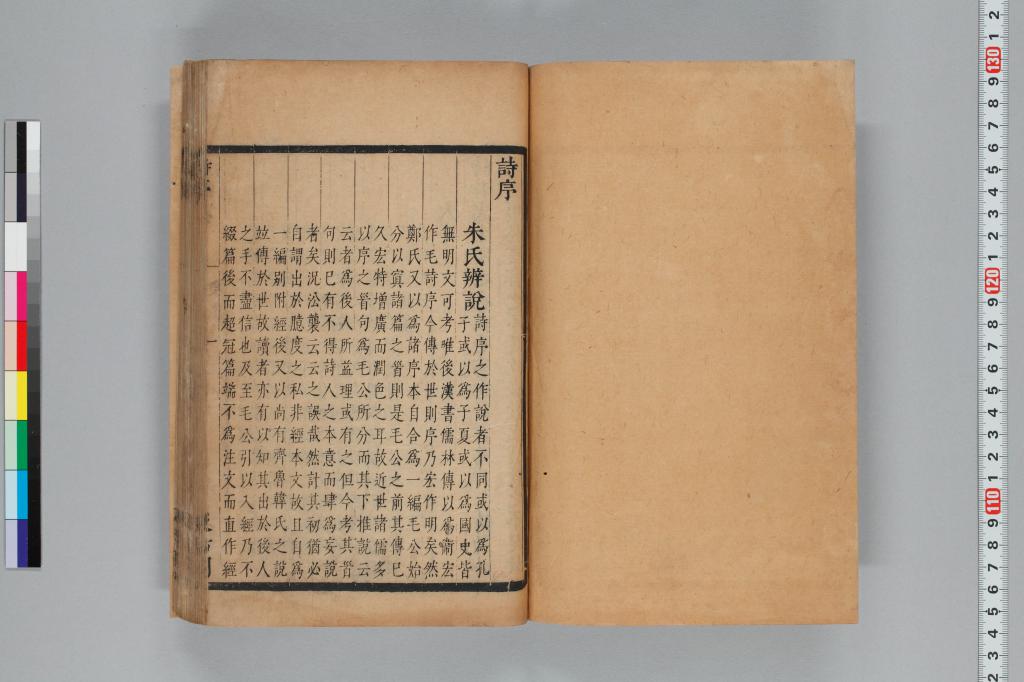 詩序
朱氏辨說
詩序之作說者不同或以爲孔
子或以爲子夏或以爲國史皆
無明文可考唯後漢書儒林傳以爲衛宏
作毛詩序今傳於世則序乃宏作明矣然
鄭氏又以爲諸序本自合爲一編毛公始
分以寘諸篇之首則是毛公之前其傳已
久宏特增廣而潤色之耳故近世諸儒多
以序之首句爲毛公所分而其下推說云
云者爲後人所益理或有之但今考其首
句則已有不得詩人之本意而肆爲妄說
者矣況沿襲云云之誤哉然計其初猶必
自謂出於臆度之私非經本文故且自爲
一編別附經後又以尚有齊魯韓氏之說
竝傳於世故讀者亦有以知其出於後人
之手不盡信也及至毛公引以入經乃不
綴篇後而超冠篇端不爲注文而直作經
一
2 1 130 9 8 7 6 5 4 3 2 1 120 9 8 7 6 5 4 3 2 1 110 9 8 7 6 5 4 3 2